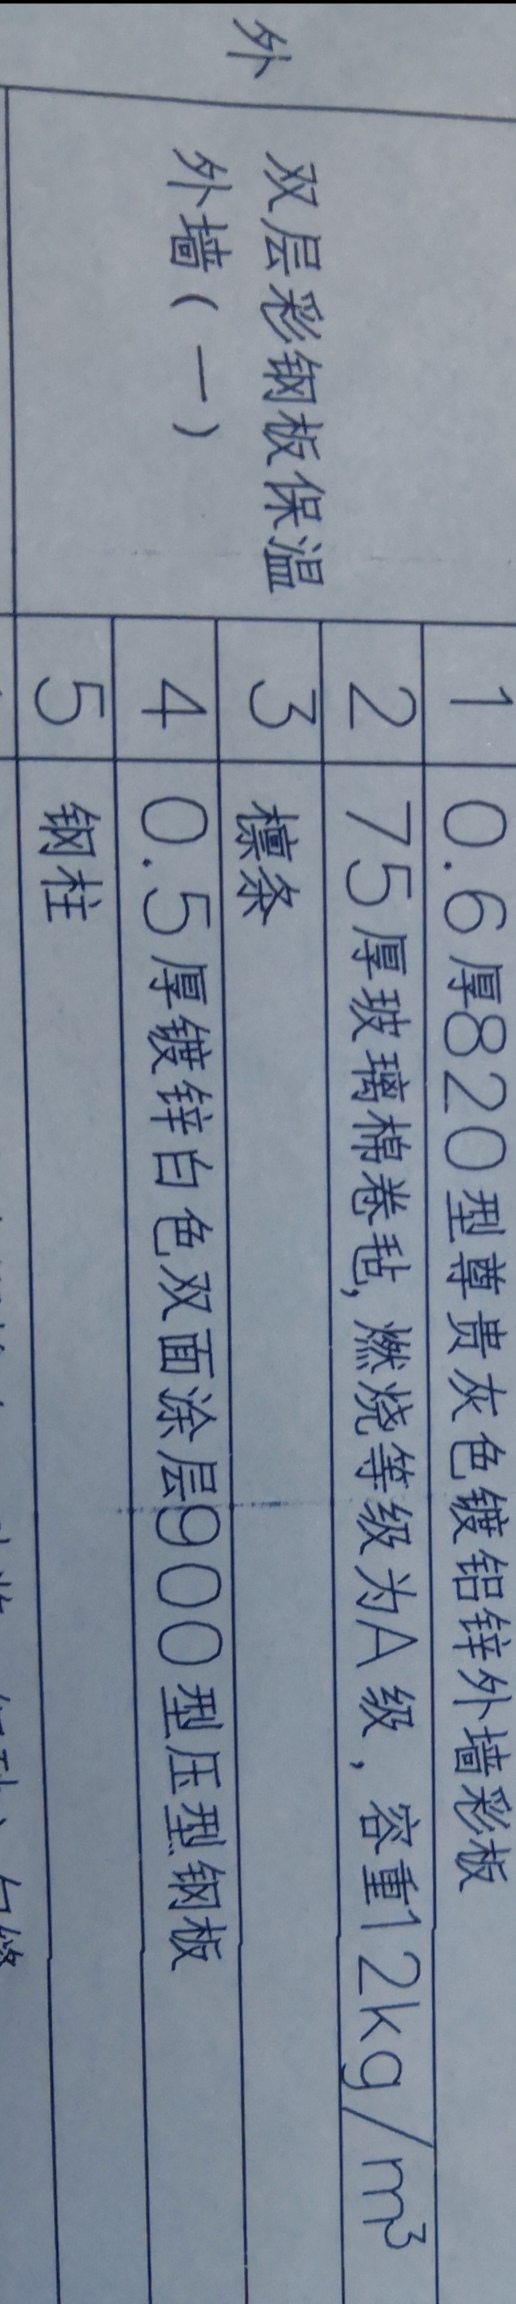 外
双层彩钢板保温
外墙(一)
1 0.6厚820型尊贵灰色镀铝锌外墙彩板
2 75厚玻璃棉卷毡,燃烧等级为A级,容重12kg/m³
3 檩条
4 0.5厚镀锌白色双面涂层900型压型钢板
5 钢柱